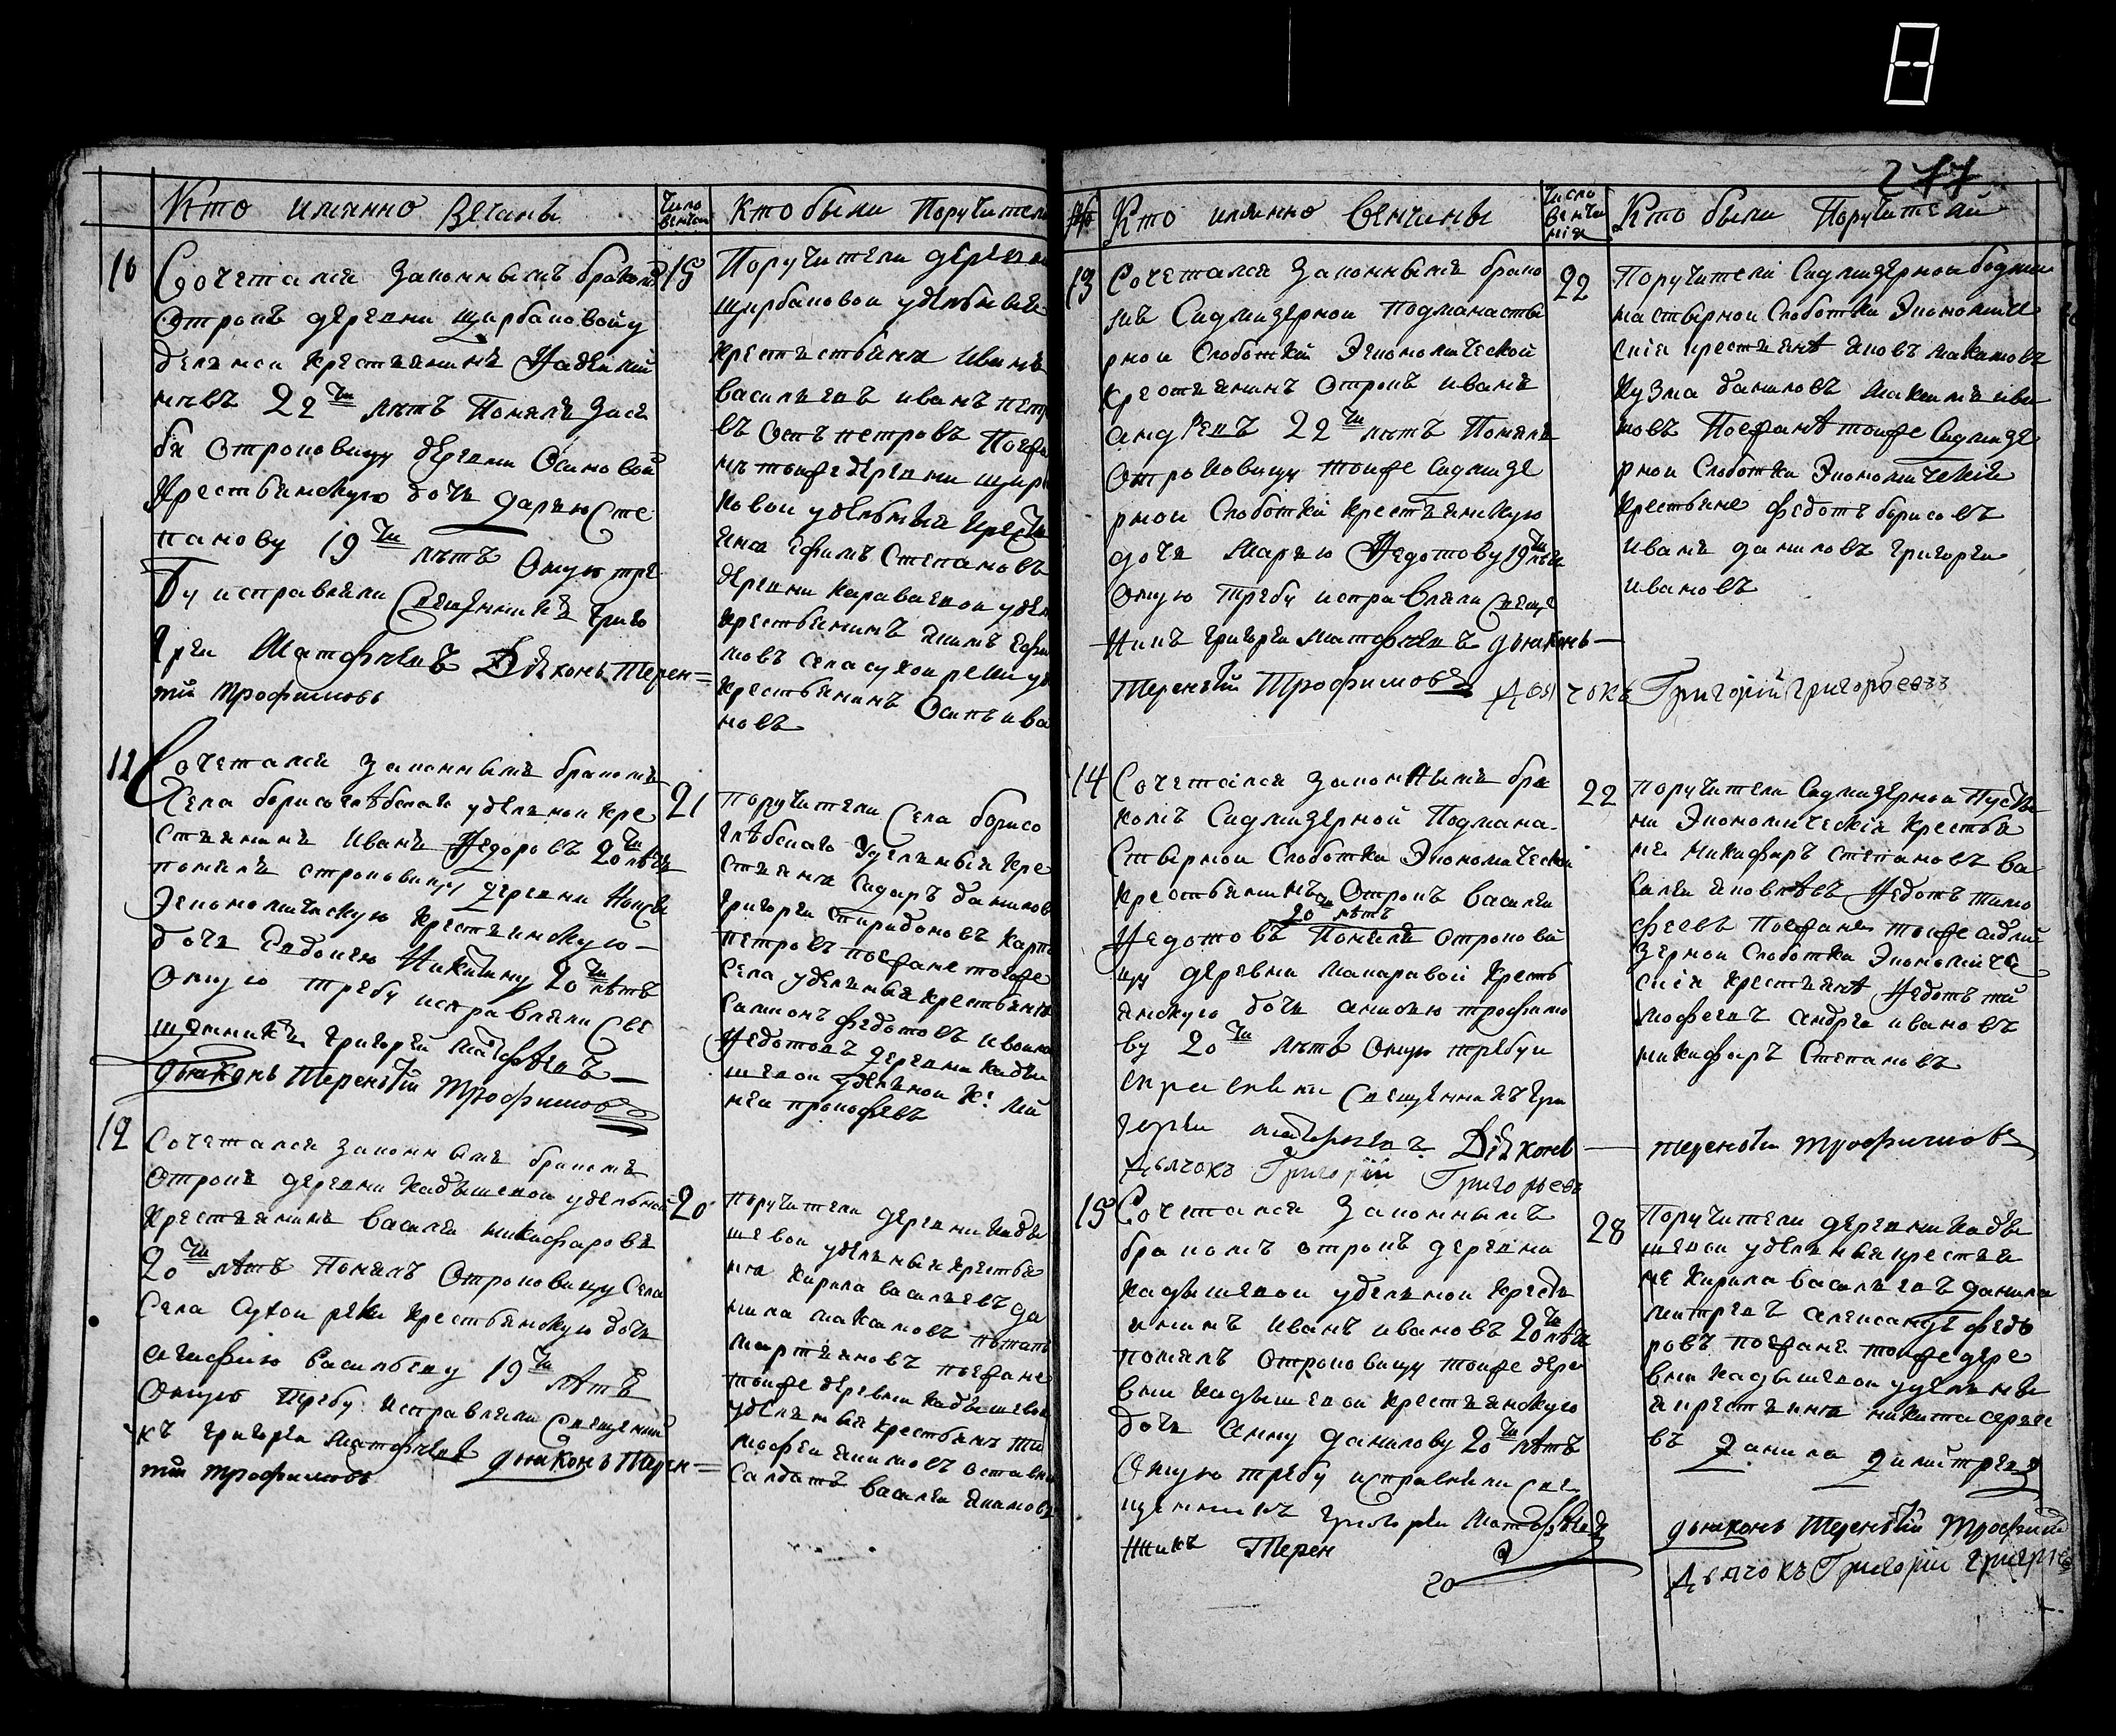 277
Кто имянно Вечаны
Число венчан
Кто были Поручители
10
Сочетался законнымъ бракомъ
15
Отрокъ деревни Щирбаковой у
делной крестьянинъ
22 ти лѣтъ Понялъ засе
бя Отроковицу деревни Осиновой
Крестьянскую дочь Дарью Сте
панову 19 ти лѣтъ Оную тре
бу исправляли Священникъ Григо
рей Матфеевъ Діяконъ Терен=
тій Трофимовъ
Поручители деревни
щирбаковой удельныя
крестьяня Иванъ
Васильевъ Иванъ
въ Осипъ Петровъ Поезжа
нъ тоиже деревни щир
ковои удельныя
Ефимъ Степановъ
деревни Караваевой удел
крестьянинъ Якимъ Ефи
мовъ села сухои реки уд
крестьянинъ Осипъ Ива
новъ
11
Сочетался законнымъ бракомъ
Села Борисоглѣбскаго уделной кре
21
стьянинъ Иванъ Ѳедоровъ 20 ти лѣтъ
понялъ отроковицу деревни
Экономическую крестьянскую
дочь Евдокею Никитину 20 ти лѣтъ
Оную требу исправляли Свя
щенникъ Григорей Матфеевъ
дьяконъ Терентій Трофимовъ
поручители Села Борисо
глѣбскаго Уделныя кре
стьяня Сидаръ Даниловъ
Григорей Спиридоновъ Карпъ
петровъ поезжане тогоже
Села уделныя крестьяня
Самсонъ Федотовъ Иванъ
Ѳедотовъ деревни Кады
шевой уделной
прокофевъ
12
Сочетался законнымъ бракомъ
Отрокъ деревни Кадышевой удельной
20
Крестьянинъ Василей Никифаровъ
20 ти лѣтъ Понялъ Отроковицу Села
Села Сухои реки крестьянскую дочь
Агафию Васильеву 19 ти лѣтъ
Оную требу исправляли Священни
къ Григорей Матфеевъ дьяконъ Терен=
тій Трофимовъ
поручители деревни Кады
шевой уделныя крестья
ня Кирила Васильевъ Да
нила Максимовъ Потапъ
Мартьяновъ поезжане
тоиже деревни Кадышевой
уделныя крестьянъ Ти
мофей Якимовъ отставной
Салдатъ Василей Якимовъ
№
Кто имянно венчаны
Число венчания
Кто были Поручители
13
Сочетался Законнымъ брако
22
мъ Сидмизернои Подманасты
рнои Слоботки Экономической
крестьянинъ Отрокъ Иванъ
Андревъ 22 ти лѣтъ Понялъ
Отроковицу тоиже Сидмизе
рнои Слоботки крестьянскую
дочь Марью Ѳедотову 19 ти лѣтъ
Оную требу исправляли Свяще
нникъ Григорей Матфеевъ дьяконъ
Терентій Трофимовъ дьячокъ Григорій Григорьевъ
Поручители Сидмизернои Подмо
настырнои Слоботки Экономиче
ския крестьянѣ Яковъ Максимовъ
Кузма Даниловъ Максимъ Ива
новъ Поезжанѣ тоиже Сидмизе
рнои Слоботки Экономическия
крестьяне Федотъ Борисовъ
Иванъ Даниловъ Григорей
Ивановъ
14
Сочетался законнымъ бра
22
комъ Сидмизерной Подмана
стырнои Слоботки Экономической
крестьянинъ Отрокъ Василей
20 ти лѣтъ
Ѳедотовъ Понялъ отрокови
цу деревни Макаравой кресть
янскую дочь Анисью Трофимо
ву 20 ти лѣтъ Оную требу и
справляли Священникъ Гри
горей Матфеевъ Діяконъ
Терентій Трофимовъ
дьячокъ Григорій Григорьевъ
поручители Сидмизернои Пусты
ни Экономическія крестья
не Никифаръ Степановъ Ва
силей Яковлѣвъ Ѳедотъ Тимо
феевъ Поезжане тоиже сидми
зернои Слоботки Экономиче
ския крестьянѣ Ѳедотъ Ти
мофеевъ Андрей Ивановъ
Никифаръ Степановъ
15
Сочетался Законнымъ
28
бракомъ отрокъ деревни
Кадышевой уделной кресть
янинъ Иванъ Ивановъ 20 ти лѣтъ
понялъ Отроковицу тоиже дере
вни Кадышевой крестьянскую
дочь Анну Данилову 20 ти лѣтъ
Оную требу исправляли Свя
щенникъ Григорей Матфеевъ
Терен
Поручители деревни Кады
шевой уделныя крестья
не Кирила Васильевъ Данила
Митревъ Александъ Федо
ровъ поезжанѣ тоиже дере
вни Кадышевой уделны
я крестьяня Никита Сергее
въ Данила Димитревъ
дьяконъ Терентій Трофимо
Дьячокъ Григорій Григорьев